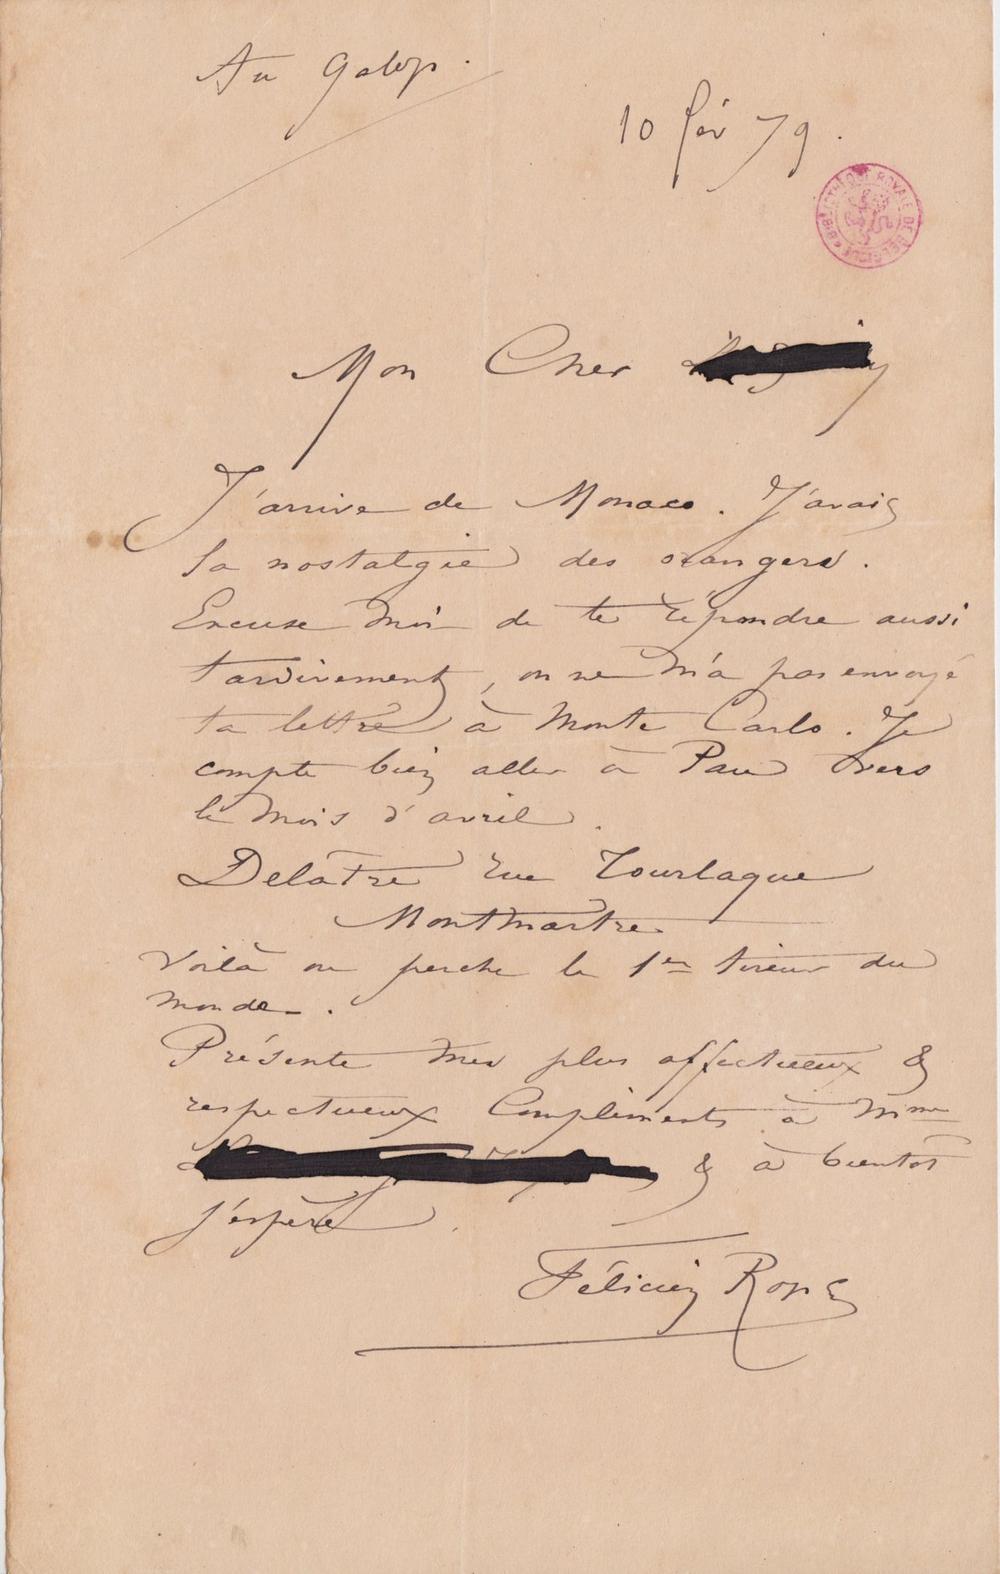 Au Galop.
10 fév 79.
BIBLIOTHÈQUE ROYALE DE BELGIQUE
Mon Cher
J'arrive de Monaco. J'avais
la nostalgie des orangers.
Excuse moi de te répondre aussi
tardivement, on ne m'a pas envoyé
ta lettre à Monte Carlo. Je
compte bien aller à Pau vers
le mois d'avril.
Delâtre rue Tourlaque
Montmartre
Voilà ou perche le 1er tireur du
monde.
Présente mes plus affectueux &
respectueux Compliments à Mme
& à bientot
j'espère.
Félicien Rops